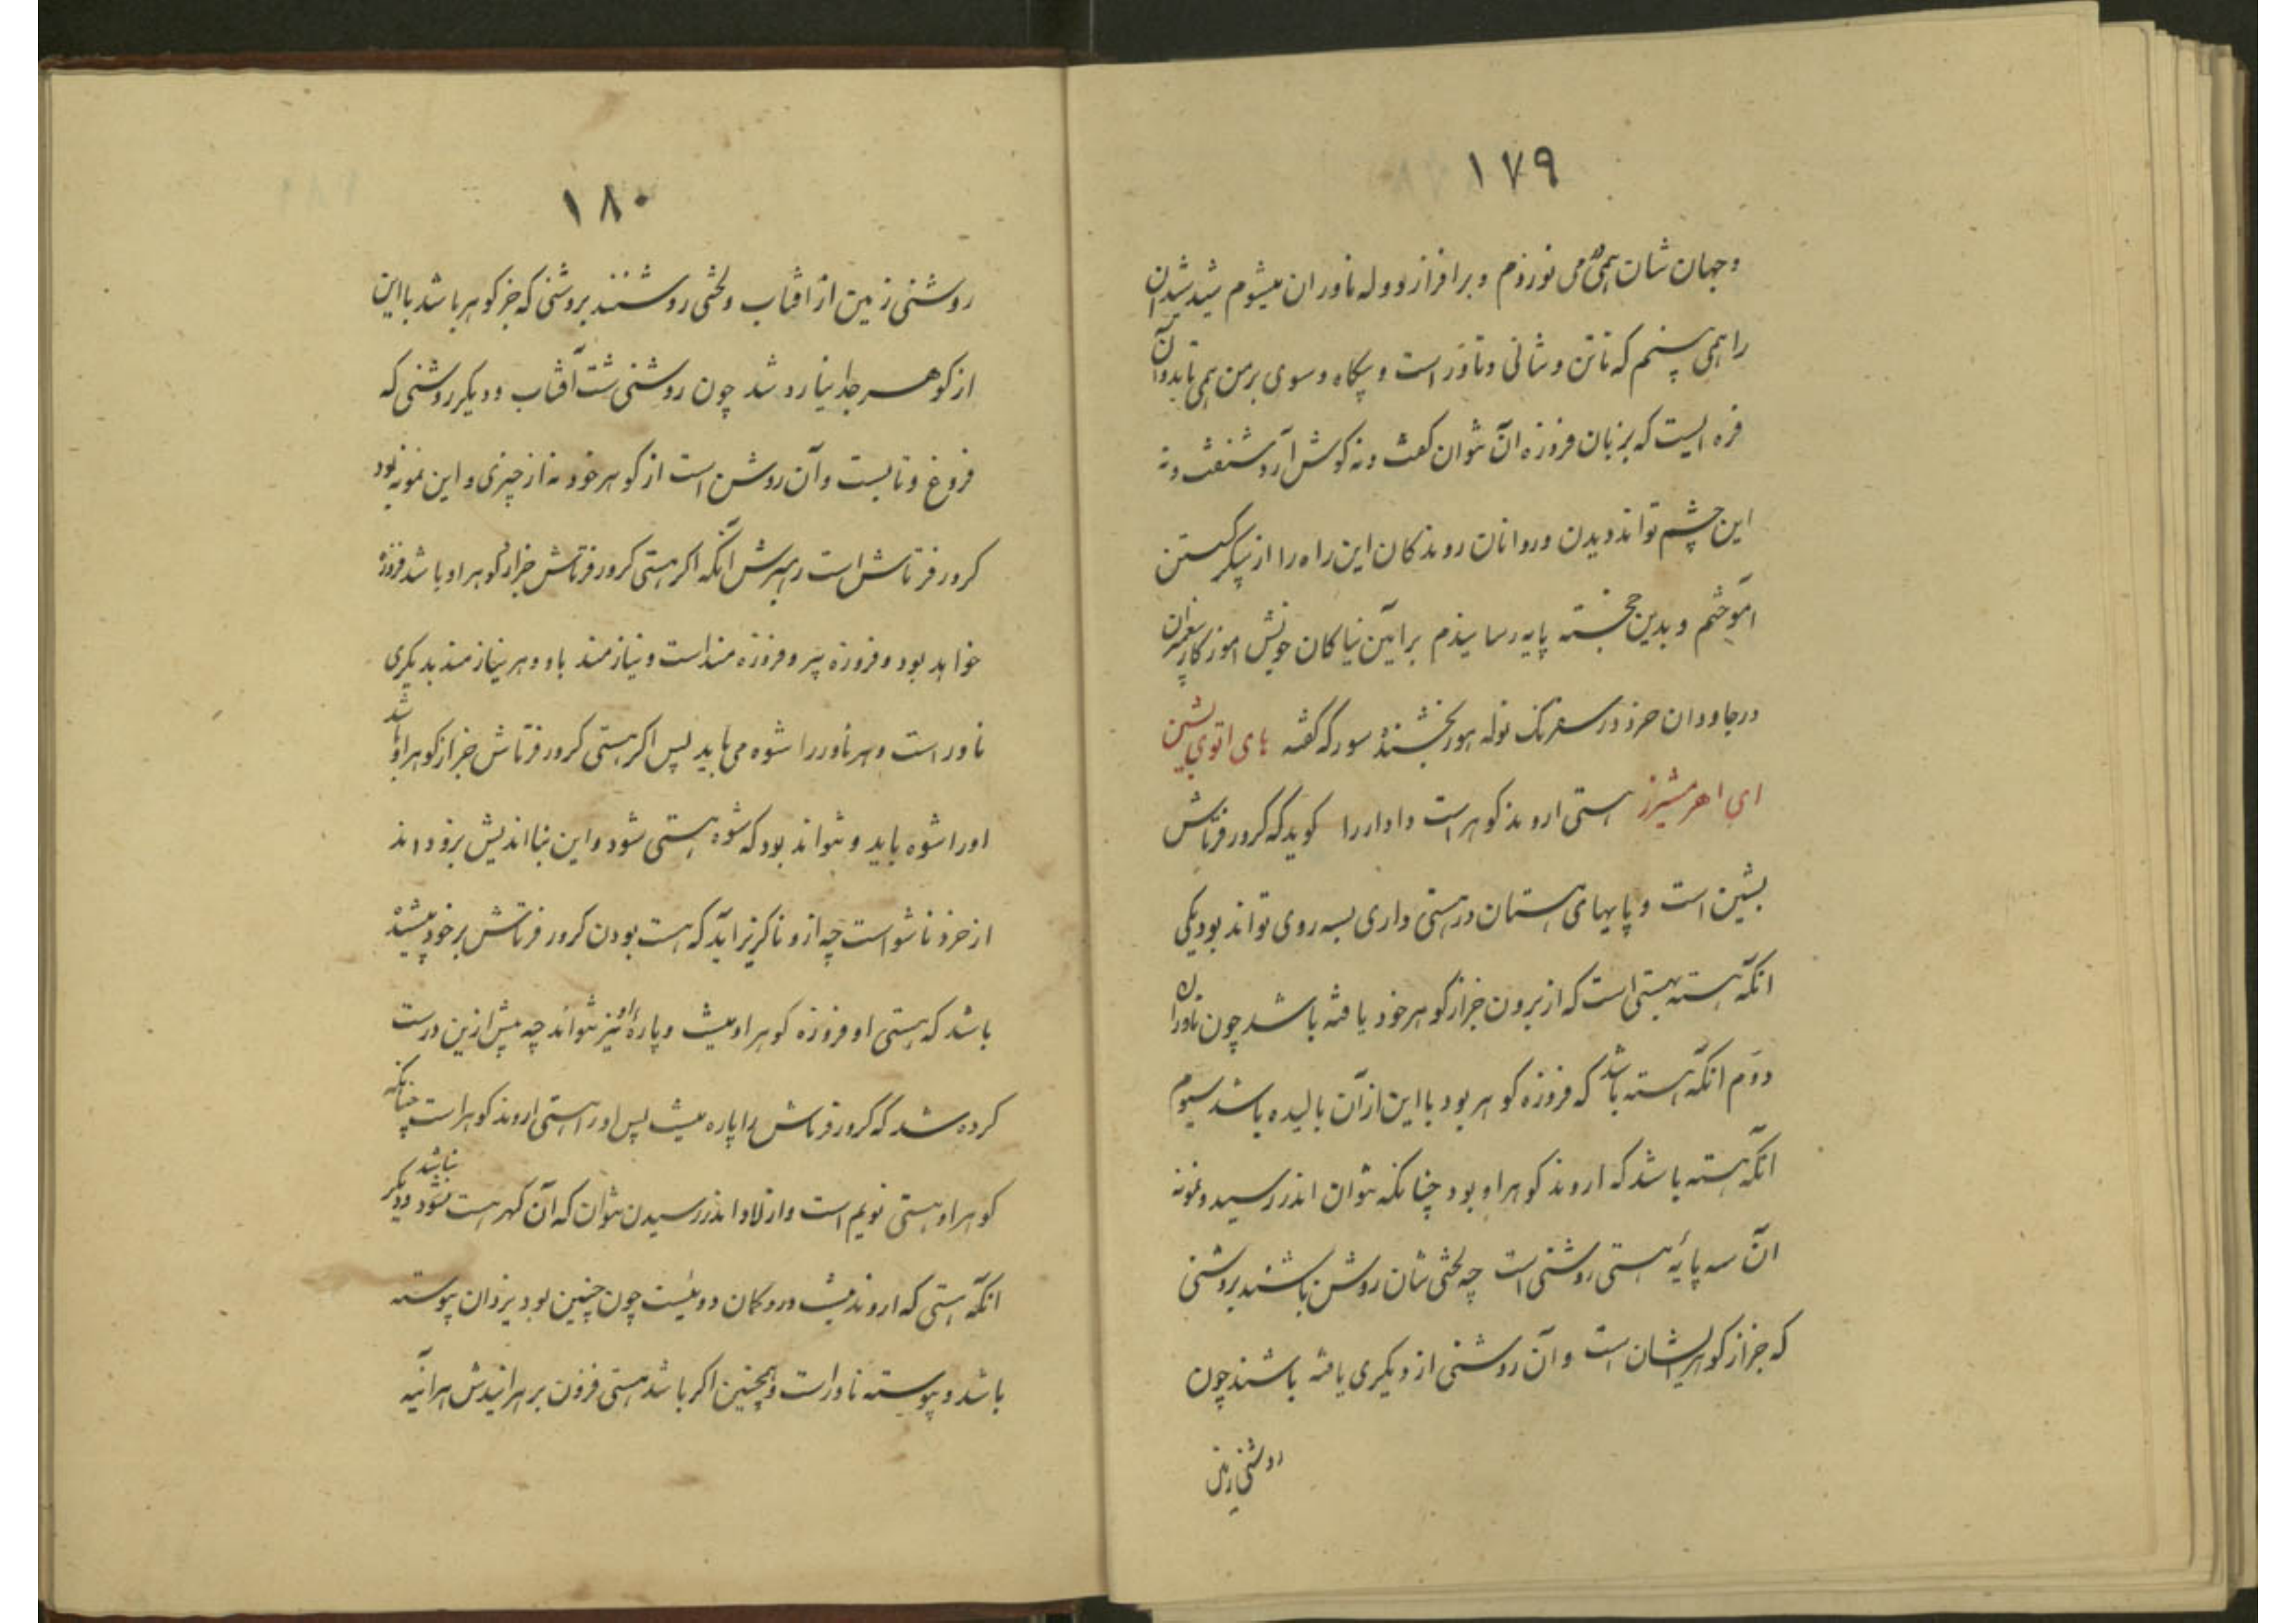 ۱۷۹
و جهان شان همی می نوردم و بر افراز و وله ناوران میشوم شید شیدان
را همی بینم که ناتن و شانی و تاور است و بیکاه و سوی بر من همی تابد و آن
فره ایست که بزبان فروزه آن نتوان کفت و نه کوش آرد شنفت و نه
این چشم تواند دیدن و روانان روندکان این راه را از پیکر کسستن
آموختم و بدین خجسته پایه رسانیدم بر آیین نیاکان خویش آموزکار
در جاودان خرد در سفرنک نوله هور بخشنده سورکر کفته
ای اهر مشیرز هستی اروند کوهر است دادار را کوید که کرور فرتاش
بشین است و پایهای هستان در هستی داری بسه روی تواند بود یکی
آنکه هسته بهستی است که از برون جز از کوهر خود یافته باشد چون ناوران
دوم آنکه هسته باشد که فروزه کوهر بود با این از آن بالیده باشد سیوم
آنکه هسته باشد که اروند کوهر او بود چنانکه نتوان اندر رسید و نمونه
آن سه پایه هستی روشنی است چه لختی شان روشن باشند بروشنی
که جز از کوهر ایشان است و آن روشنی از دیکری یافته باشند چون
روشنی زمین
۱۸۰
روشنی زمین از آفتاب و لختی روشنند بروشنی که جز کوهر باشد با این
از کوهر جدا نیارد شد چون روشنی شت آفتاب و دیکر روشنی که
فروغ و تابست و آن روشن است از کوهر خود نه از چیزی و این نمونه بود
کرور فرتاش است رهبرش آنکه اکر هستی کرور فرتاش جز از کوهر او باشد فروزه
خواهد بود و فروزه پیرو فروزه مند است و نیازمند باو و هر نیازمند بدیکری
ناور است و هر ناور را شوه می باید پس اکر هستی کرور فرتاش جز از کوهر او باشد
او را شوه باید و نتواند بود که شوه هستی شود و این بنا اندیش برزو داند
از خرد ناشو است چه ازو ناکزیر آید که هست بودن کرور فرتاش بر خود پیشینه
باشد که هستی او فروزه کوهر او نیست و پاره او نیز نتواند چه پیش ازین درست
کرده شد که کرور فرتاش را پاره نیست پس او را هستی اروند کوهر است چنانکه
کوهر او هستی نویم است و از لاد اندر رسیدن نتوان که آن کهر هست نبود نباشد و دیکر
آنکه هستی که اروند نیست در و کمان دوئیست چون چنین بود یزدان پیوسته
باشد و پیوسته ناور است و همچنین اکر باشد هستی فزون بر هر اندیش هر آئینه